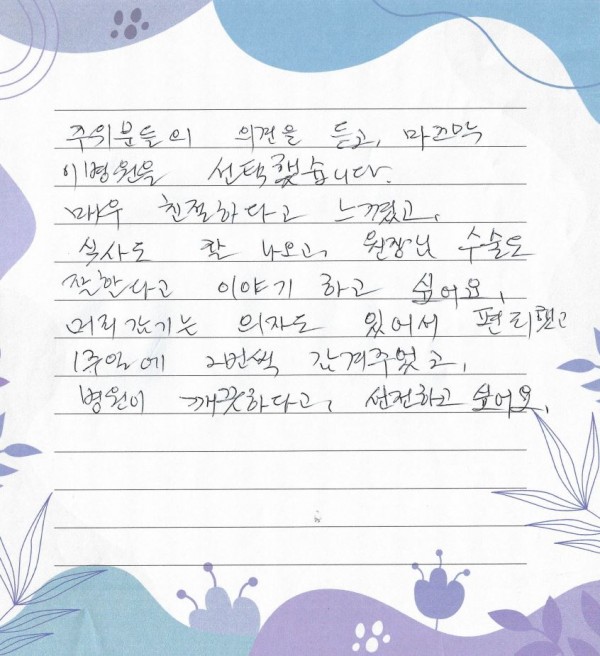 주위분들의 의견을 듣고, 마즈막
이병원을 선택했습니다.
매우 친절하다고 느꼈고,
식사도 잘 나오고, 원장님 수술도
잘한다고 이야기 하고 싶어요,
머리감기는 의자도 있어서 편리했고
1주일에 2번씩 감겨주었고,
병원이 깨끗하다고, 선전하고 싶어요,